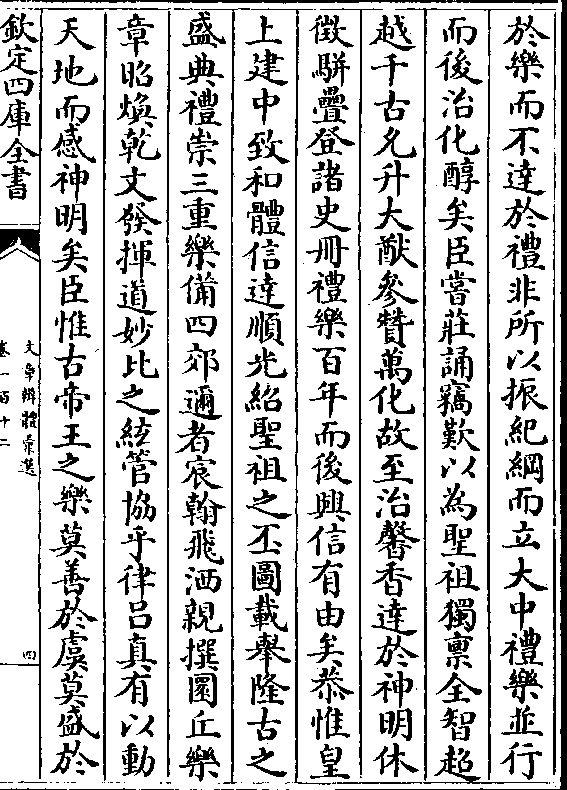 於樂而不達於禮非所以振紀綱而立大中禮樂並行
而後治化醇矣臣嘗莊誦竊歎以為聖祖獨禀全智超
越千古允升大猷參贊萬化故至治馨香達於神明休
徵駢疊登諸史冊禮樂百年而後興信有由矣恭惟皇
上建中致和體信達順光紹聖祖之丕圖載舉隆古之
盛典禮崇三重樂備四郊邇者宸翰飛洒親撰圜丘樂
章昭煥乾文發揮道妙比之絃管協乎律呂真有以動
天地而感神明矣臣惟古帝王之樂莫善於虞莫盛於
欽定四庫全書
文章辨體彙選
卷一百十二
四